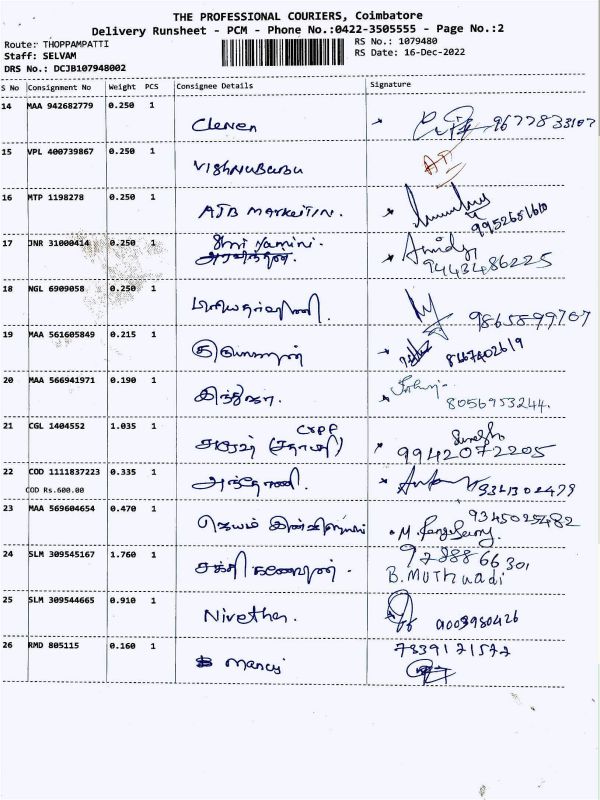 THE PROFESSIONAL COURIERS, Coimbatore
Delivery Runsheet - PCM - Phone No.:0422-3505555 - Page No.:2
Route: THOPPAMPATTI
RS No.: 1079480
Staff: SELVAM
RS Date: 16-Dec-2022
DRS No.: DCJB107948002
S No Consignment No Weight PCS Consignee Details Signature
14 MAA 942682779 0.250 1
15 VPL 400739867 0.250 1
VishnuBabu
16 MTP 1198278 0.250 1
AJB MARKETIN.
9952651610
17 JNR 31000414 0.250 1
Shri Yamini.
9443486225
18 NGL 6909058 0.250 1
9865899707
19 MAA 561605849 0.215 1
8667402619
20 MAA 566941971 0.190 1
இந்துஜா.
8056953244.
21 CGL 1404552 1.035 1
Suresh
9942072205
22 COD 1111837223 0.335 1
COD Rs.600.00
அந்தோணி.
9341302479
23 MAA 569604654 0.470 1
9345025482
24 SLM 309545167 1.760 1
சக்தி கணேஷன்.
B.Muthuadi
25 SLM 309544665 0.910 1
Nivetha.
9003980426
26 RMD 805115 0.160 1
Mancy
7339121572